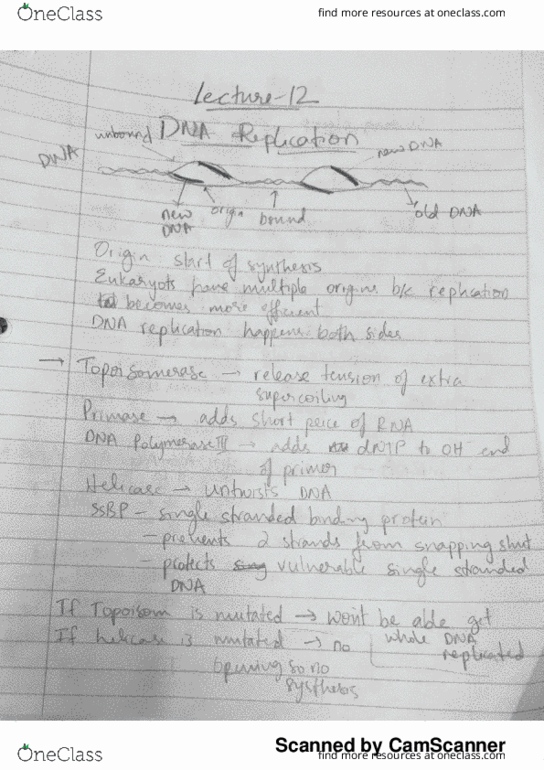 OneClass
find more resources at oneclass.com
Lecture-12
DNA Replication
unbound
new DNA
DNA
new DNA
origin
bound
old DNA
Origin: start of synthesis
Eukaryots have multiple origins b/c replication
becomes more efficient
DNA replication happens both sides
→ Topoisomerase → release tension of extra
supercoiling
Primase → adds short peice of RNA
DNA Polymerase III → adds dNTP to OH end
of primer
Helicase → untwists DNA
SSBP - single stranded binding protein
- prevents 2 strands from snapping shut
- protects vulnerable single stranded
DNA
If Topoisom is mutated → wont be able get
whole DNA replicated
If helicase is mutated → no
opening so no
Scanned by CamScanner
OneClass
find more resources at oneclass.com